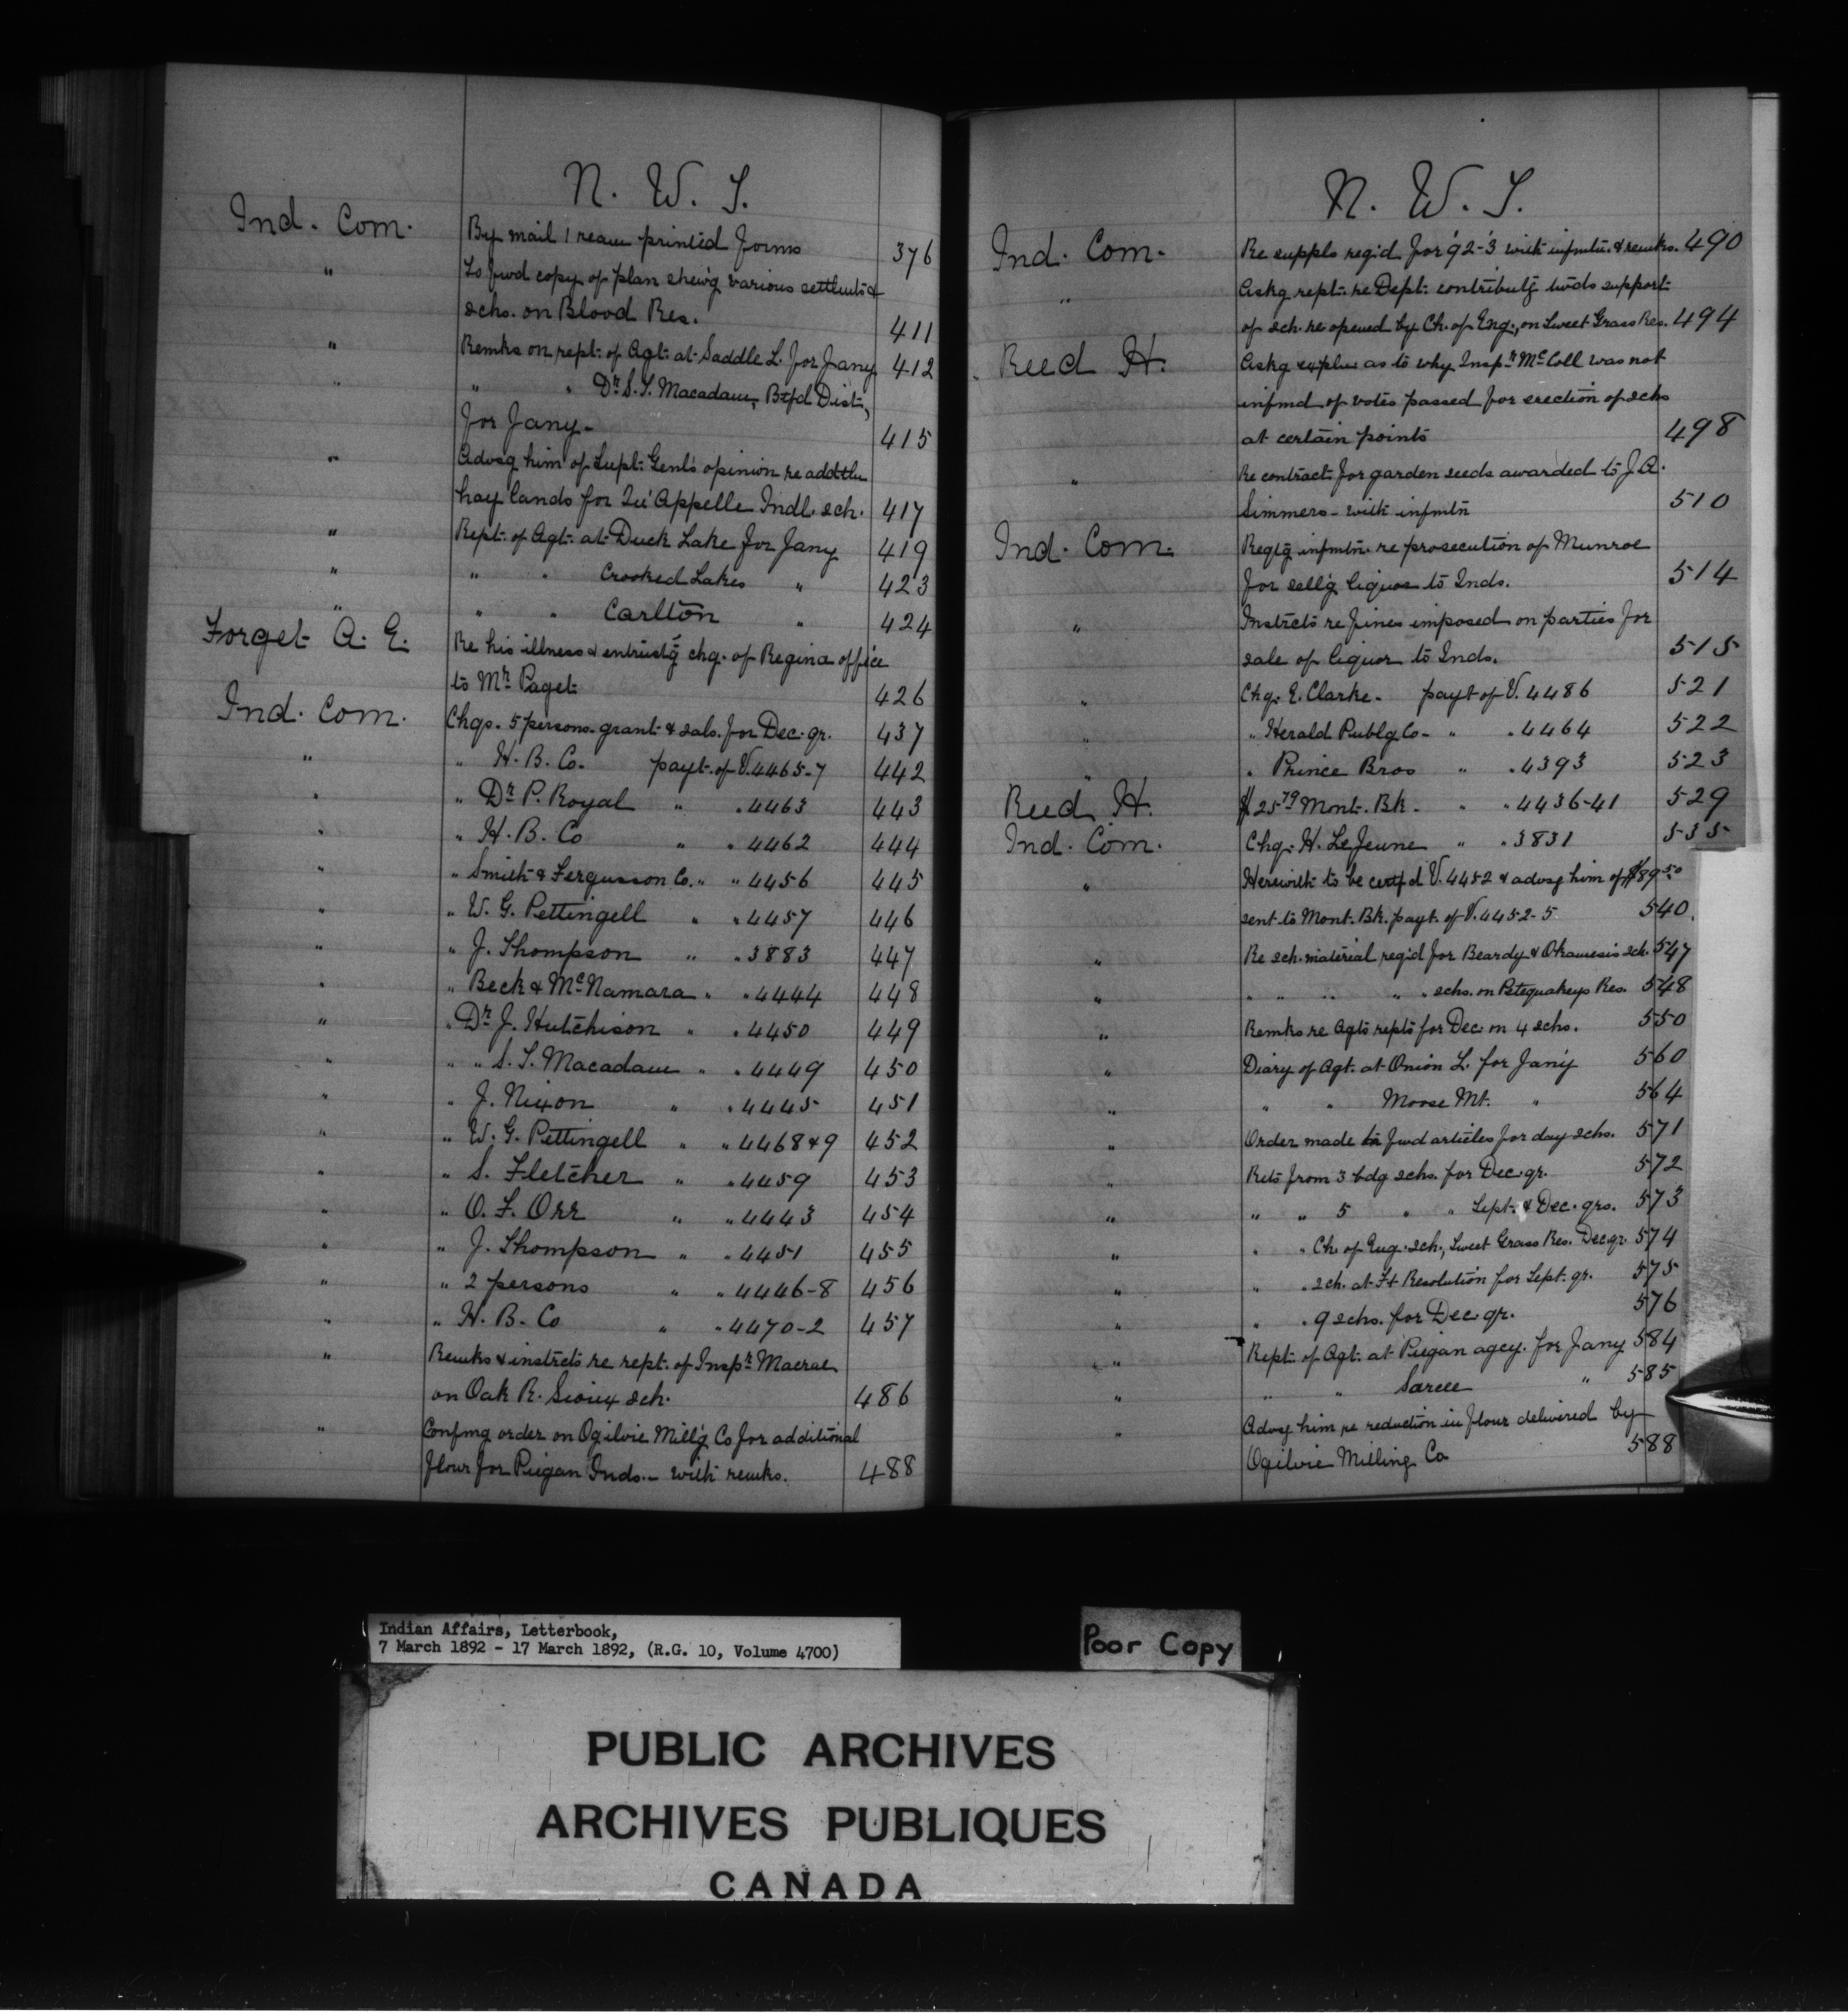 N. W. T.
Ind. Com. By mail 1 ream printed forms 376
" To fwd copy of plan shewg various settlmts &
schs. on Blood Res. 411
" Remks on rept. of Agt. at Saddle L. for Jany 412
" " " Dr. S. T. Macadam, Btfd Dist,
for Jany. 415
" Advsg him of Supt. Genl's opinion re addtln
hay lands for Qu'Appelle Indl. sch. 417
" Rept. of Agt. at Duck Lake for Jany 419
" " " Crooked Lakes " 423
" " " Carlton " 424
Forget A. E. Re his illness & entrustg chg. of Regina office
to Mr. Paget 426
Ind. Com. Chgs. 5 persons grant & sals. for Dec. qr. 437
" " H. B. Co. payt. of V. 4465-7 442
" " Dr. P. Royal " " 4463 443
" " H. B. Co " " 4462 444
" " Smith & Fergusson Co. " " 4456 445
" " W. G. Pettingell " " 4457 446
" " J. Thompson " " 3883 447
" " Beck & McNamara " " 4444 448
" " Dr. J. Hutchison " " 4450 449
" " " S. T. Macadam " " 4449 450
" " J. Nixon " " 4445 451
" " W. G. Pettingell " " 4468 & 9 452
" " S. Fletcher " " 4459 453
" " O. F. Orr " " 4443 454
" " J. Thompson " " 4451 455
" " 2 persons " " 4446-8 456
" " H. B. Co " " 4470-2 457
" Remks & instrcts re rept. of Inspr. Macrae
on Oak R. Sioux sch. 486
" Confmg order on Ogilvie Millg Co for additional
flour for Piegan Inds. - with remks. 488
N. W. T.
Ind. Com. Re suppls reqd. for '92-'3 with infmtn. & remks. 490
" Askg rept. re Dept. contributg twds support
of sch. re-opened by Ch. of Eng., on Sweet Grass Res. 494
Reed H. Askg explns as to why Inspr. McColl was not
infmd of votes passed for erection of schs
at certain points 498
" Re contract for garden seeds awarded to J. A.
Simmers - with infmtn 510
Ind. Com. Reqtg infmtn. re prosecution of Munroe
for sellg liquor to Inds. 514
" Instrcts re fines imposed on parties for
sale of liquor to Inds. 515
" Chg. E. Clarke - payt of V. 4486 521
" " Herald Publg Co - " " 4464 522
" " Prince Bros " " 4393 523
Reed H. $25.79 Mont. Bk. " " 4436-41 529
Ind. Com. Chg. H. LeJeune " " 3831 535
" Herewith to be certfd V. 4452 & advsg him of $89.50
sent to Mont. Bk. payt. of V. 4452-5 540
" Re sch. material reqd for Beardy & Okamesis sch. 547
" " " " " " schs. on Petequakeys Res. 548
" Remks re Agts repts for Dec. on 4 schs. 550
" Diary of Agt. at Onion L. for Jan'y 560
" " " Moose Mt. " 564
" Order made to fwd articles for day schs. 571
" Rets from 3 bdg schs. for Dec. qr. 572
" " " 5 " " Sept. & Dec. qrs. 573
" " " Ch. of Eng. sch., Sweet Grass Res. Dec. qr. 574
" " " sch. at Ft Resolution for Sept. qr. 575
" " " 9 schs. for Dec. qr. 576
" Rept. of Agt. at Piegan agcy. for Jany 584
" " " Sarcee " 585
" Advsg him re reduction in flour delivered by
Ogilvie Milling Co 588
Indian Affairs, Letterbook,
7 March 1892 - 17 March 1892, (R.G. 10, Volume 4700)
Poor Copy
PUBLIC ARCHIVES
ARCHIVES PUBLIQUES
CANADA